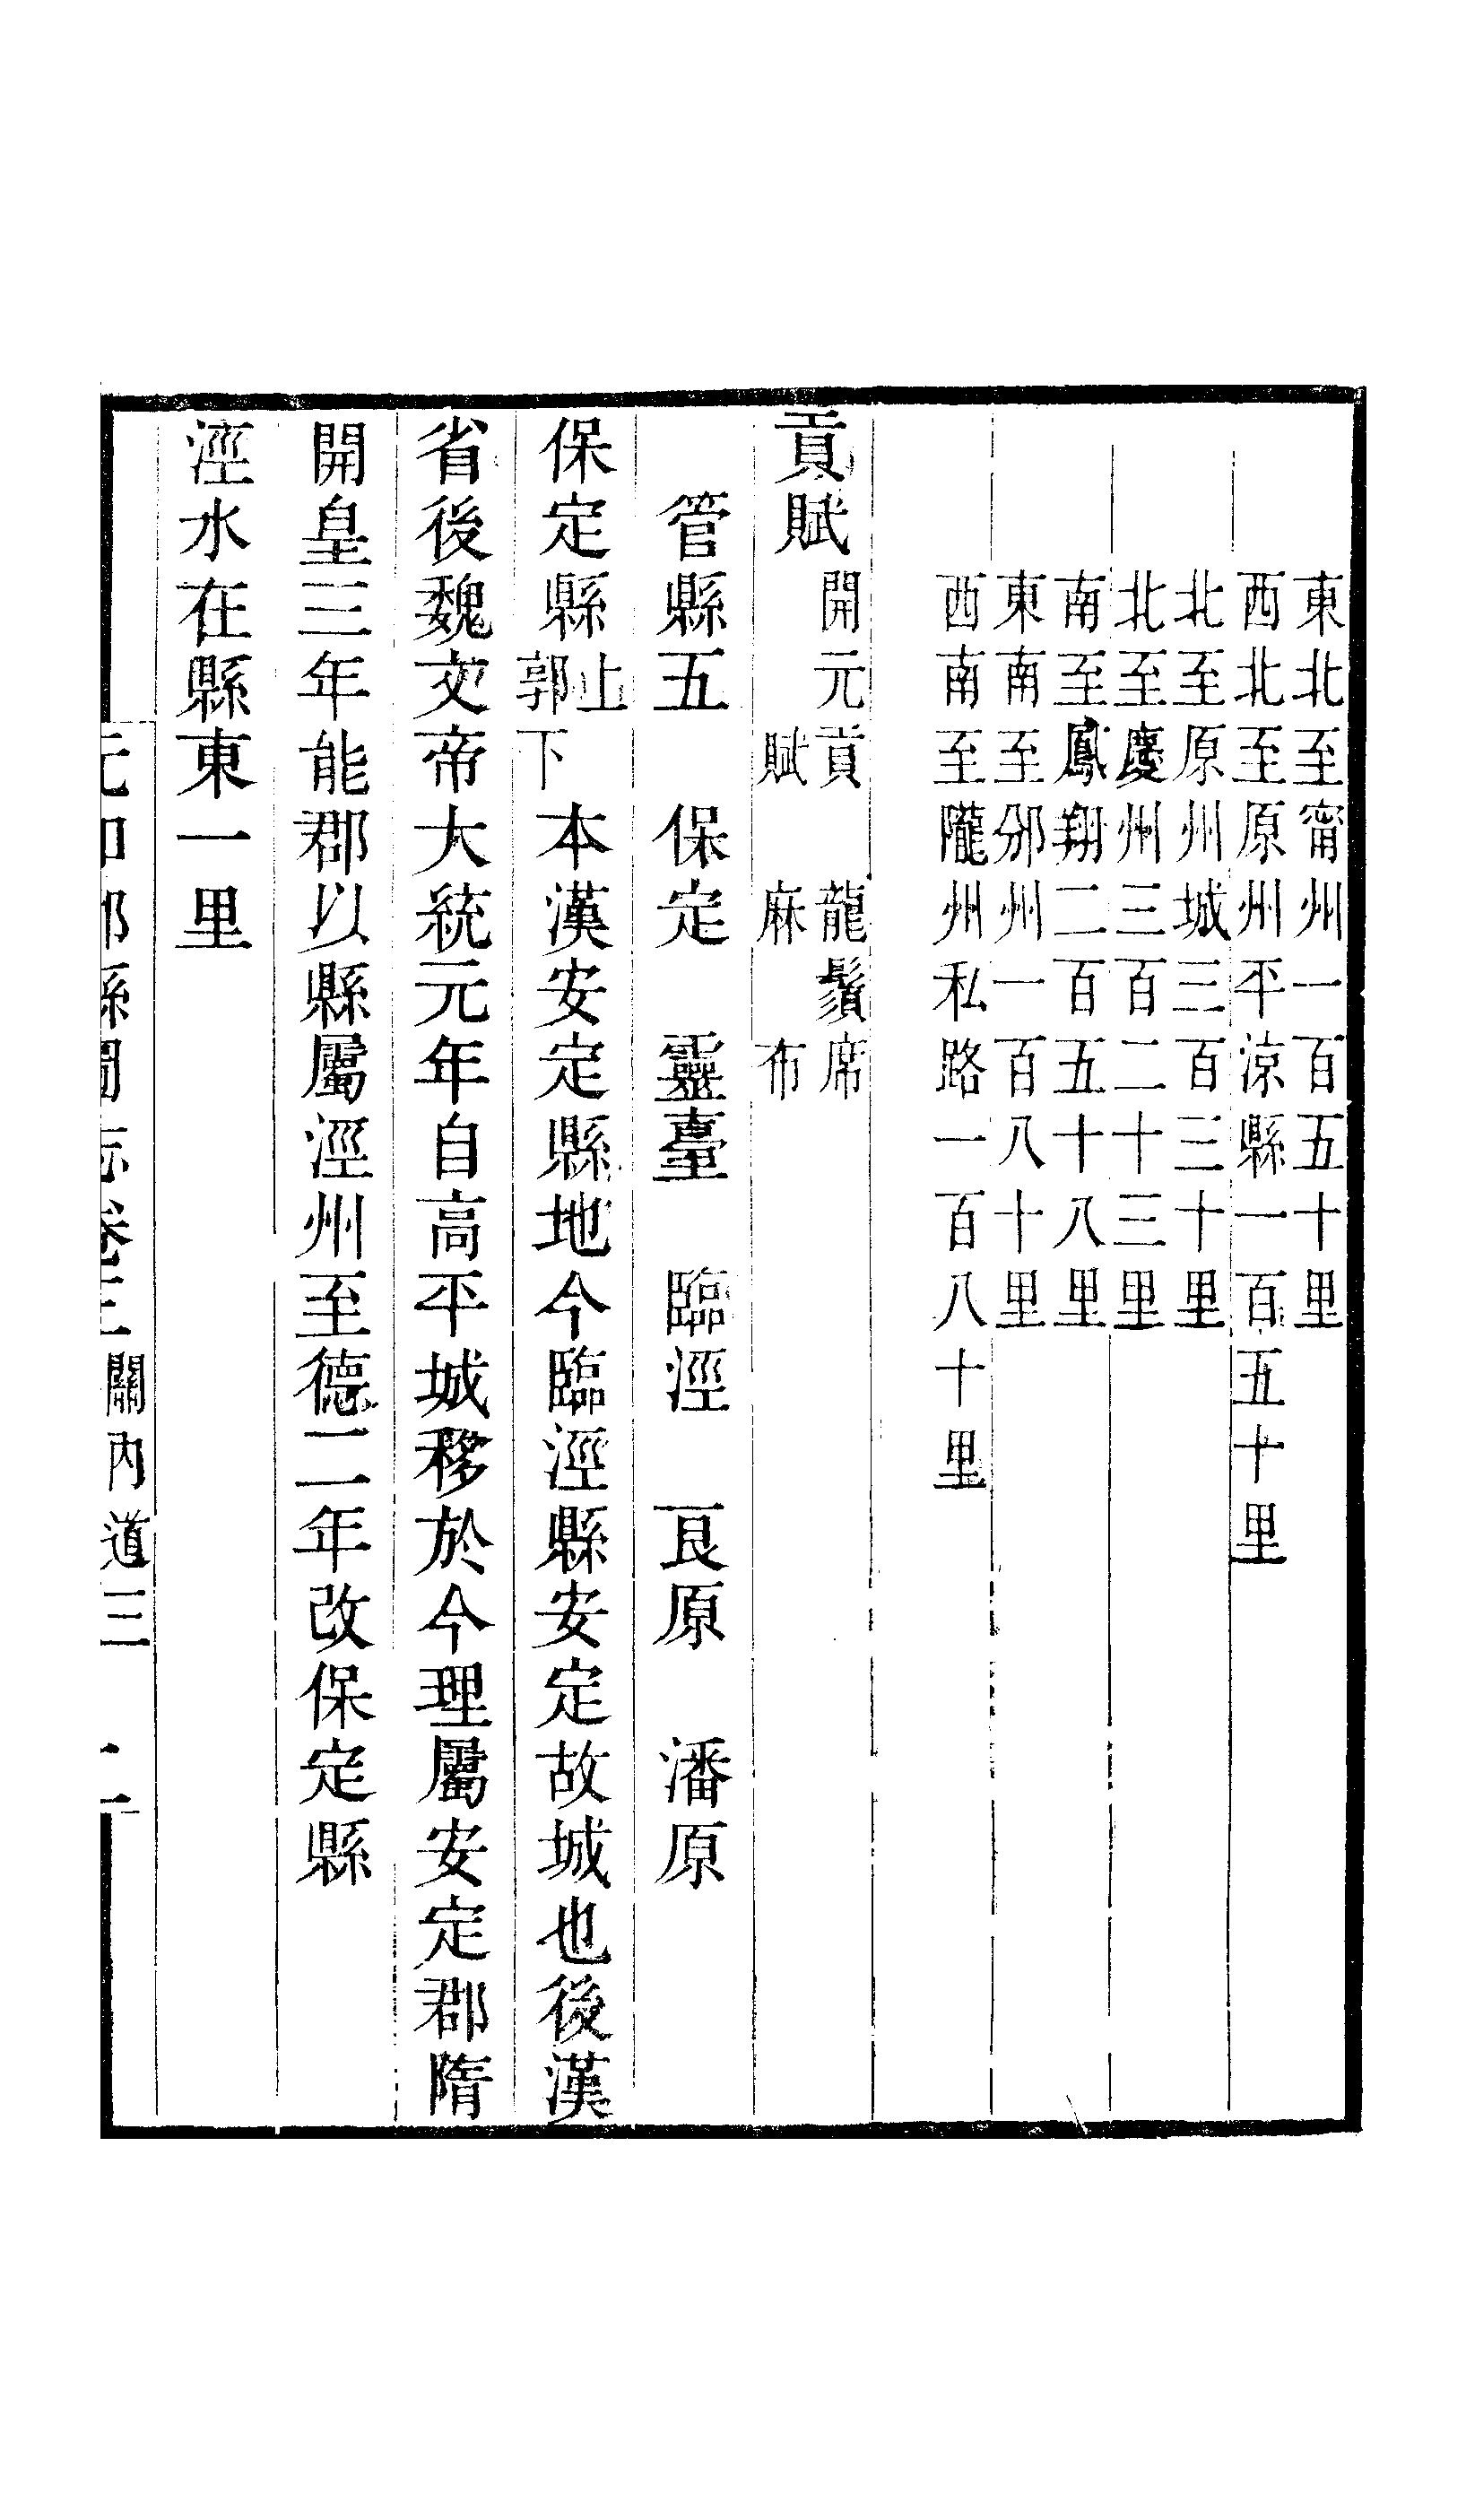 東北至甯州一百五十里
西北至原州平涼縣一百五十里
北至原州城三百三十里
北至慶州三百二十三里
南至鳳翔二百五十八里
東南至邠州一百八十里
西南至隴州私路一百八十里
貢賦 開元貢 龍鬚席 賦 麻布
管縣五 保定 靈臺 臨涇 良原 潘原
保定縣 上 郭下 本漢安定縣地今臨涇縣安定故城也後漢
省後魏文帝大統元年自高平城移於今理屬安定郡隋
開皇三年能郡以縣屬涇州至德二年改保定縣
涇水在縣東一里
元和郡縣圖志卷三 關內道三